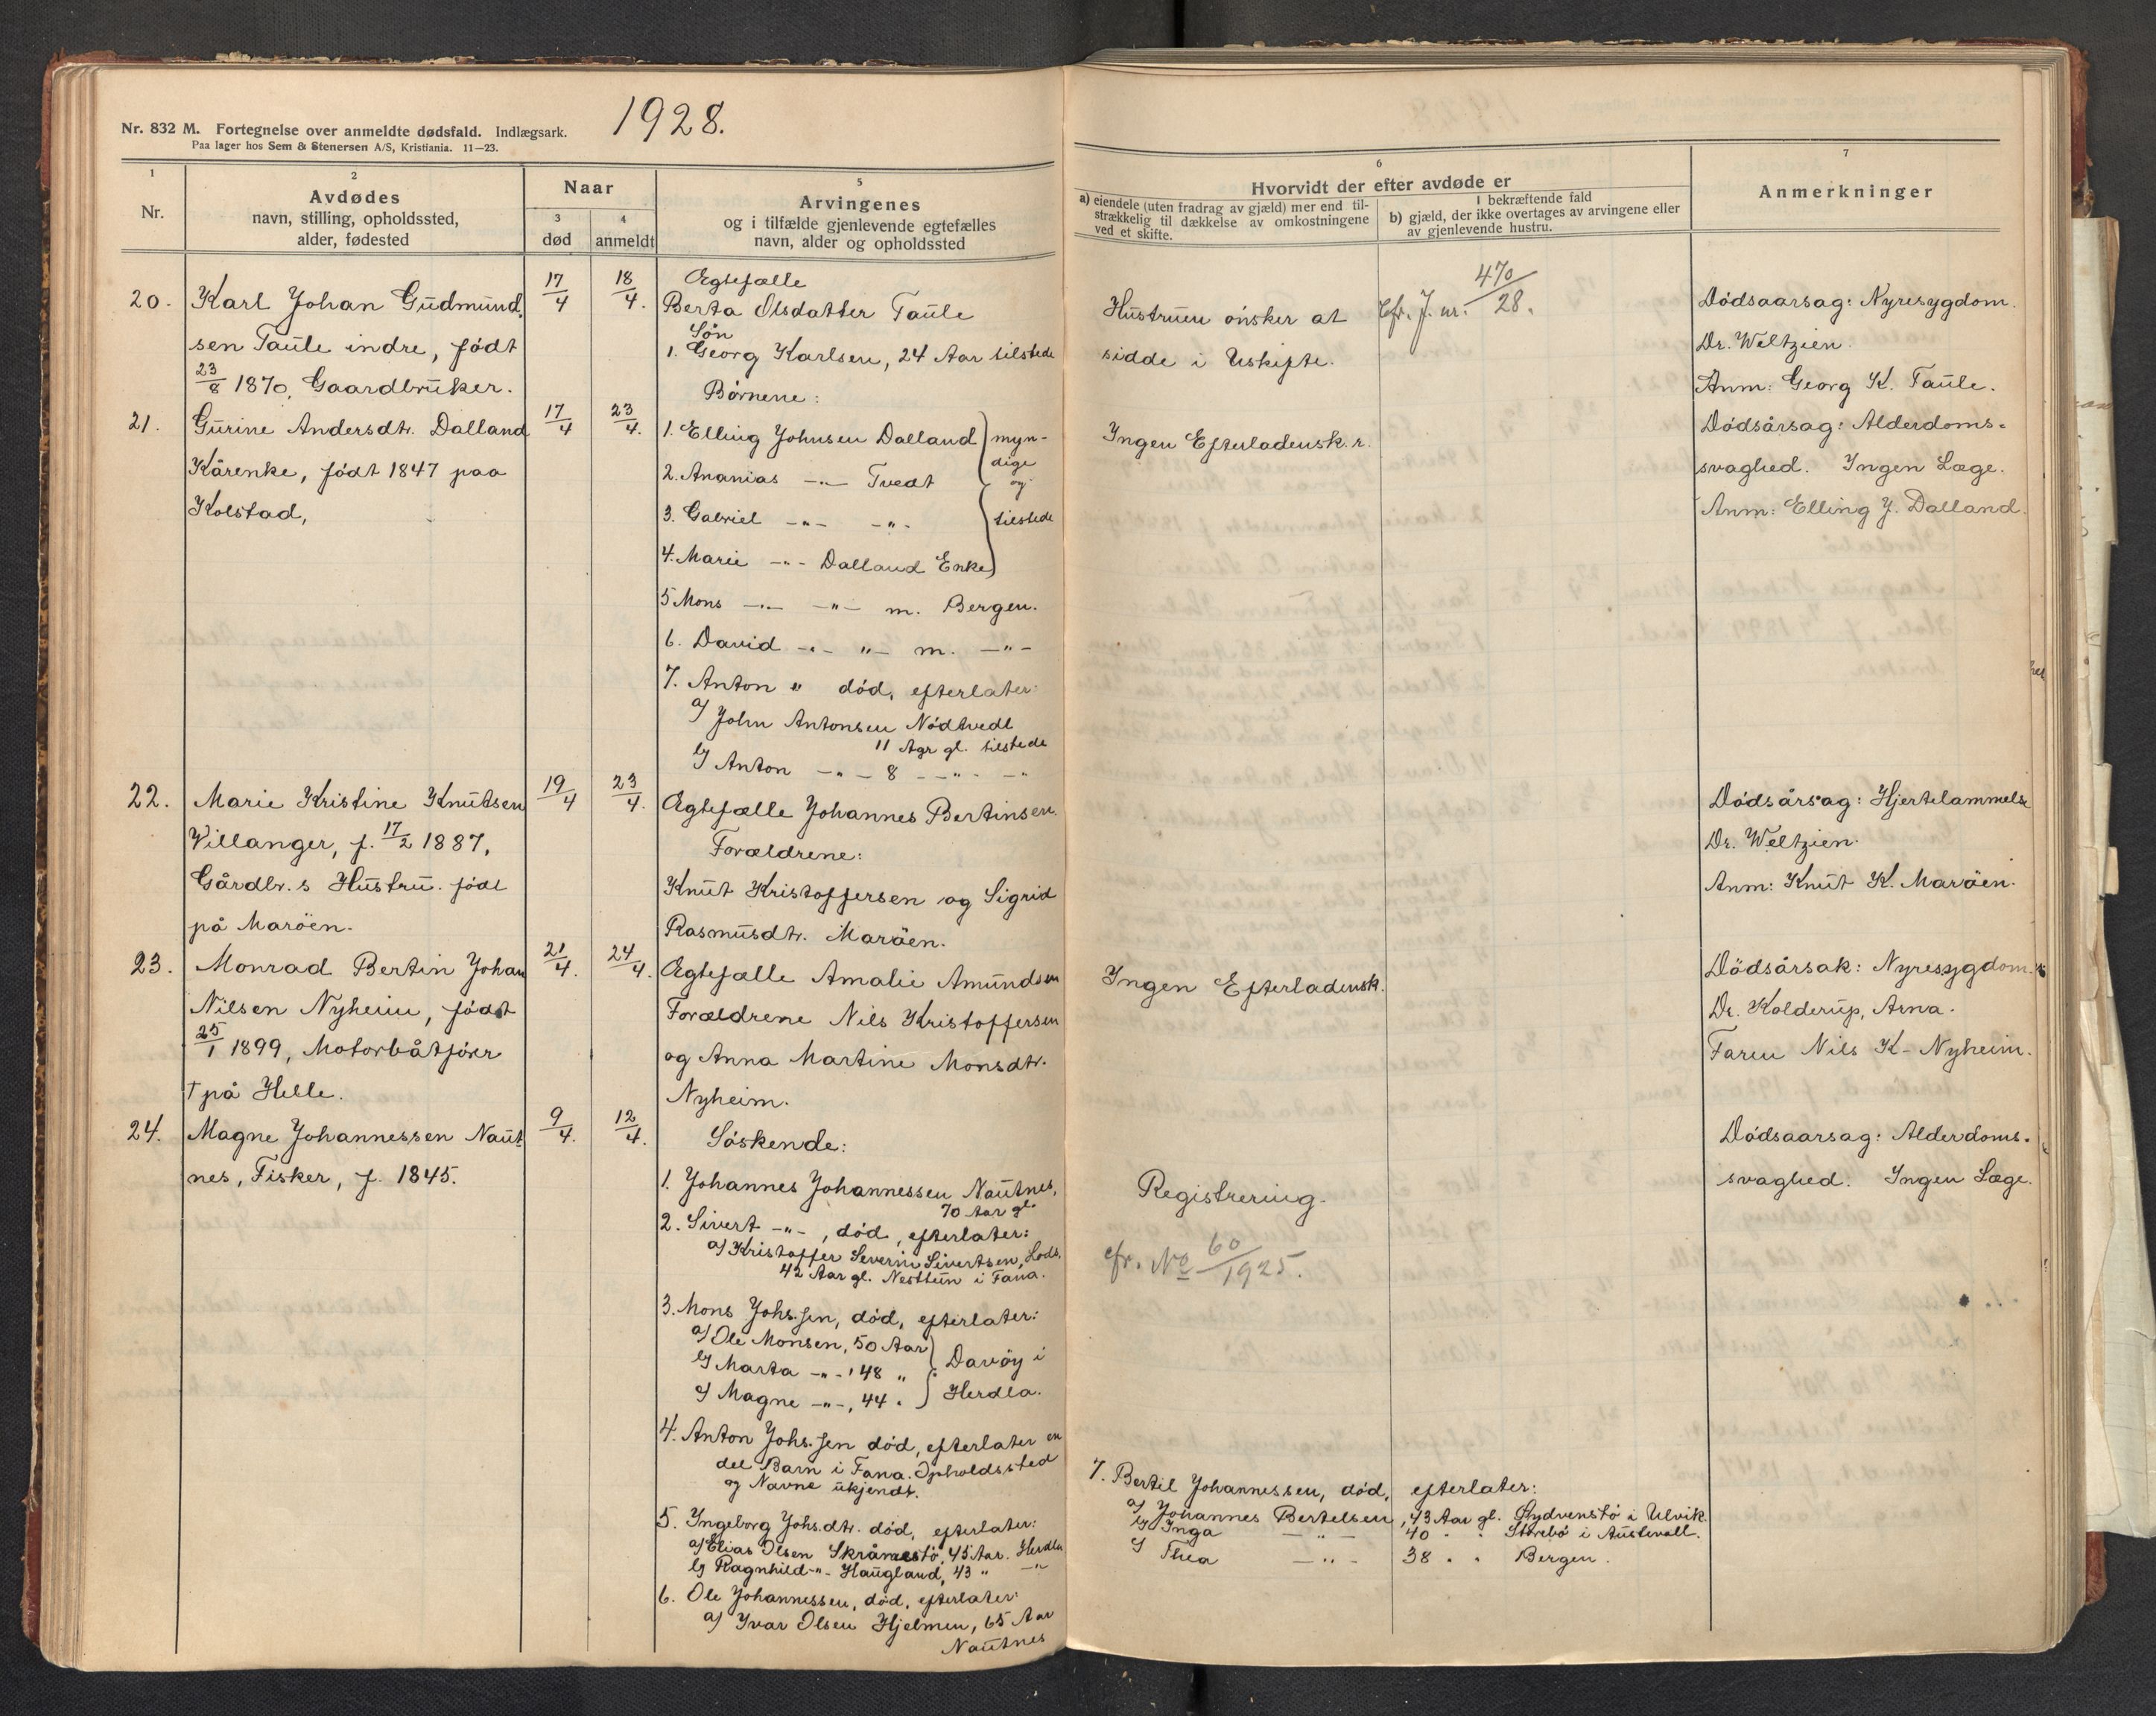 Nr. 832 M. Fortegnelse over anmeldte dødsfald. Indlægsark.
Paa lager hos Sem & Stenersen A/S, Kristiania. 11—23.
1928.
1
Nr.
2
Avdødes
navn, stilling, opholdssted,
alder, fødested
Naar
3
død
4
anmeldt
5
Arvingenes
og i tilfælde gjenlevende egtefælles
navn, alder og opholdssted
6
Hvorvidt der efter avdøde er
a) eiendele (uten fradrag av gjæld) mer end til-
strækkelig til dækkelse av omkostningene
ved et skifte.
I bekræftende fald
b) gjæld, der ikke overtages av arvingene eller
av gjenlevende hustru.
7
Anmerkninger
20.
Karl Johan Gudmund
sen Taule indre, født
23/8 1870, Gaardbruker.
17/4
18/4.
Ægtefælle
Berta Olsdatter Taule
Søn
1. Georg Karlsen, 24 Aar tilstede
Hustruen ønsker at
sidde i Uskifte.
Cfr. J. nr. 470/28.
Dødsaarsag: Nyresygdom.
Dr. Weltzien.
Anm: Georg K. Taule.
21.
Gurine Andersdtr. Dalland
Kårenke, født 1847 paa
Kolstad,
17/4
23/4.
Børnene:
1. Elling Johnsen Dalland
2. Ananias -"- Tvedt
3. Gabriel -"- -"-
4. Marie -"- Dalland Enke
myn-
dige
og
tilstede
5 Mons -"- -"- m. Bergen.
6. David -"- "- m. -"-
7. Anton " død, efterlater:
a/ John Antonsen Nødtvedt
11 Aar gl. tilstede
b/ Anton -"- 8 -"- -"-
Ingen Efterladensk.r.
Dødsårsag: Alderdoms-
svaghed. Ingen Læge.
Anm: Elling J. Dalland.
22.
Marie Kristine Knutsen
Villanger, f. 17/2 1887,
Gårdbr.s Hustru. født
på Marøen.
19/4
23/4.
Ægtefælle Johannes Bertinsen.
Forældrene:
Knut Kristoffersen og Sigrid
Rasmusdtr. Marøen.
Dødsårsag: Hjertelammelse
Dr. Weltzien.
Anm: Knut K. Marøen.
23.
Monrad Bertin Johan
Nilsen Nyheim, født
25/1 1899, Motorbåtfører
† på Helle.
21/4.
24/4.
Ægtefælle Amalie Amundsen
Forældrene Nils Kristoffersen
og Anna Martine Monsdtr.
Nyheim.
Ingen Efterladensk.
Dödsårsak: Nyresygdom.
Dr. Kolderup, Arna.
Faren Nils K- Nyheim.
24.
Magne Johannessen Naut
nes, Fisker, f. 1845.
9/4.
12/4.
Søskende:
1. Johannes Johannessen Nautnes,
70 Aar gl.
2. Sivert -"-, død, efterlater:
a/ Kristoffer Severin Sivertsen, Lods.
42 Aar gl. Nesttun i Fana.
3. Mons Johs.sen, død, efterlater:
a/ Ole Monsen, 50 Aar
b/ Marta -"-, 48 "
c/ Magne -"-, 44 "
Davöy i
Herdla.
4. Anton Johs.sen død, efterlater en
del Barn i Fana. Opholdssted
og Navne ukjendt.
5. Ingeborg Johs.dtr. død, efterlater:
a/ Elias Olsen Skråmestö, 45 Aar. Herdla
b/ Ragnhild -"- Haugland, 43 " -"-
6. Ole Johannessen, død, efterlater:
a/ Ivar Olsen Hjelmen, 65 Aar
Nautnes
Registrering.
cfr. No 60/1925.
Dødsaarsag: Alderdoms-
svaghed. Ingen Læge.
7. Bertil Johannessen, død, efterlater:
a/ Johannes Bertelsen, 43 Aar gl. i Ulvik.
b/ Inga -"- 40 " " Storebö i Austevoll.
c/ Thea -"- 38 " " Bergen.